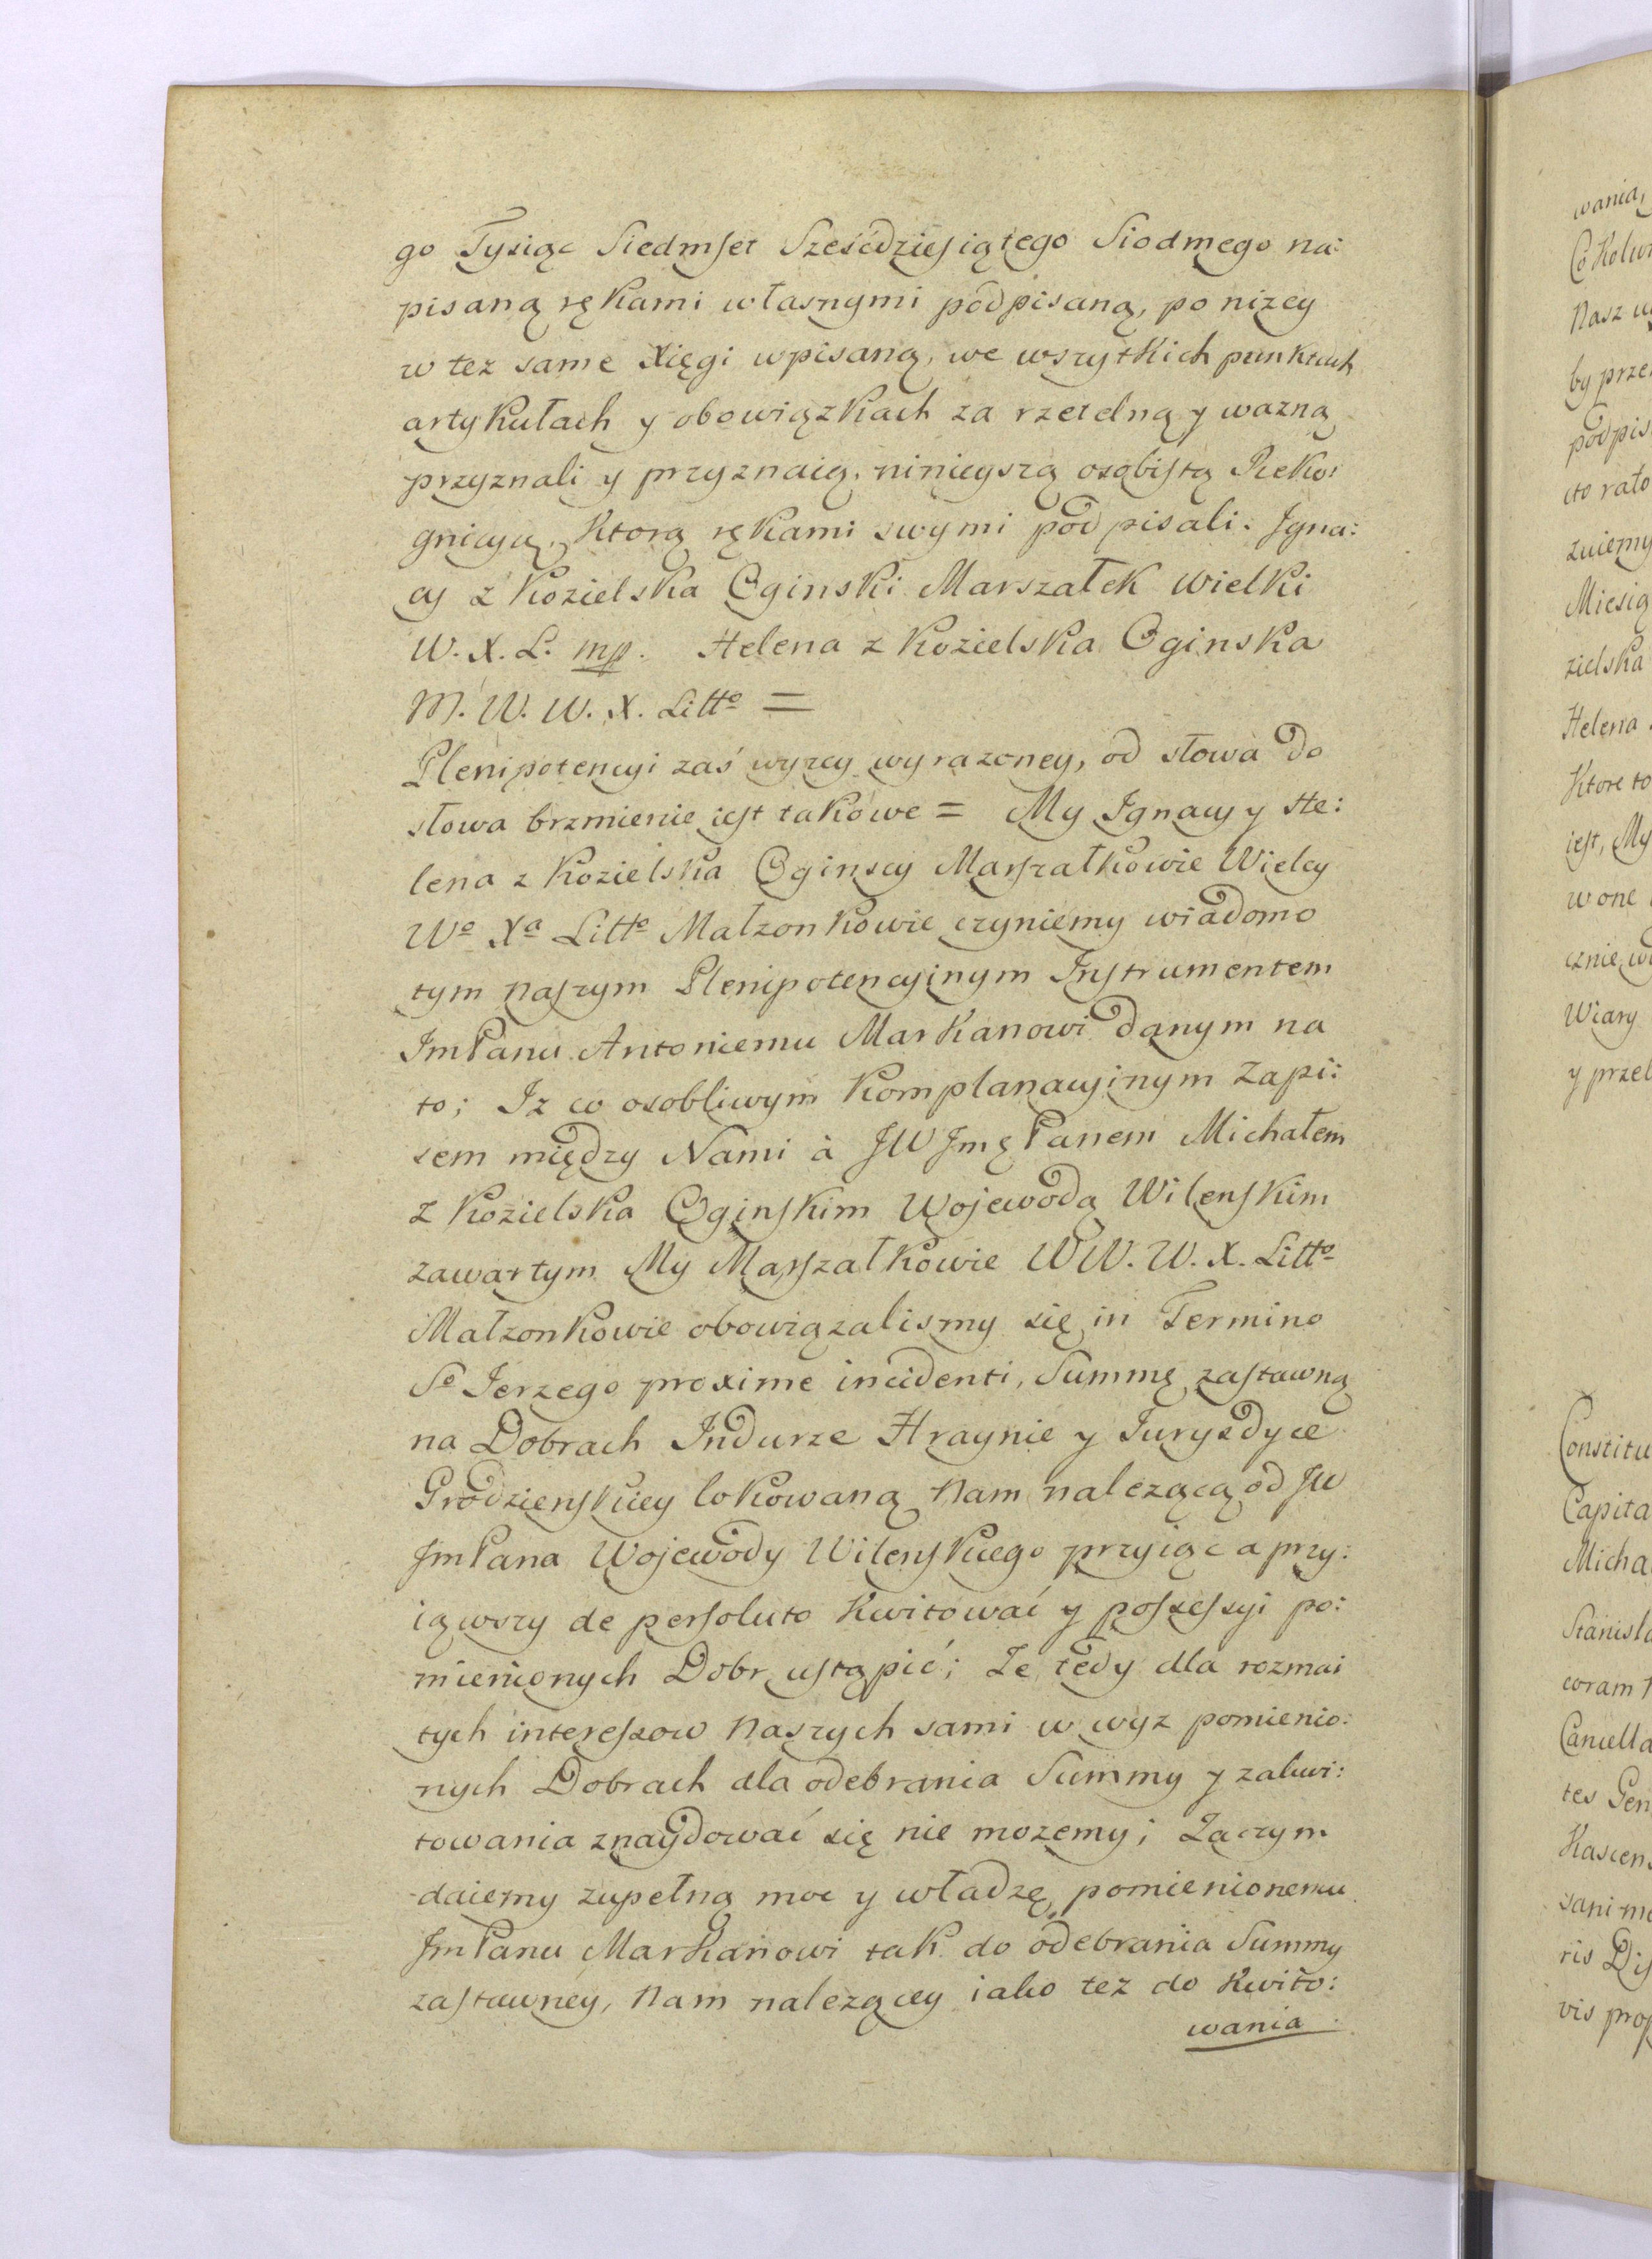 go Tysiąc Siedmset Sześćdziesiątego Siodmego na:
pisaną rękami własnymi podpisaną, po nizey
w tez same Xięgi wpisaną, we wszytkich punktach
artykułach y obowiązkach za rzetelną y wazną
przyznali y przyznaią, ninieyszą osobistą Reko:
gnicyą, Ktorą rękami swymi podpisali: Igna:
cy z Kozielska Oginski Marszałek Wielki
W. X. L. mp. Helena z Kozielska Oginska
M. W. W. X. Litto =
Plenipotencyi zaś wyzey wyrazoney, od słowa do
słowa brzmienie iest takowe = My Ignacy y He:
lena z Kozielska Oginscy Marszałkowie Wielcy
Wo Xa Litto Małzonkowie czyniemy wiadomo
tym naszym Plenipotencyinym Instrumentem
Im Panu Antoniemu Markanowi danym na
to; Iz co osobliwym Komplanacyinym Zapi:
sem między Nami à JW Jmę Panem Michałem
z Kozielska Oginskim Wojewodą Wilenskim
zawartym My Marszałkowie WW. W. X. Litto
Małzonkowie obowiązalismy się in Termino
So Jerzego proxime incidenti, Summę zastawną
na Dobrach Indurze Hraynie y Jurysdyce
Grodzienskiey lokowaną Nam nalezącą od JW
Jm Pana Wojewody Wilenskiego przyiąc a przy:
iąwszy de persoluto Kwitować y possessyi po:
mienionych Dobr ustąpić; Ze tedy dla rozmai
tych interessow Naszych sami w wyz pomienio:
nych Dobrach dla odebrania Summy y zakwi:
towania znaydować się nie mozemy; Zaczym
daiemy zupełną moc y władzę pomienionemu
Jm Panu Markanowi tak do odebrania Summy
zastawney, Nam nalezącey iako tez do Kwito:
wania
wania,
Nasz
by prze
podpis
Miesią
zielska
Helena
Ktore to
iest, My
w one
Wiary
y przel
Constitu
Capita
Micha
Stanisla
coram
Cancella
tes Gen
vis prop